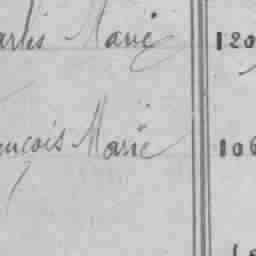 arles Marie 120
ançois Marie 106